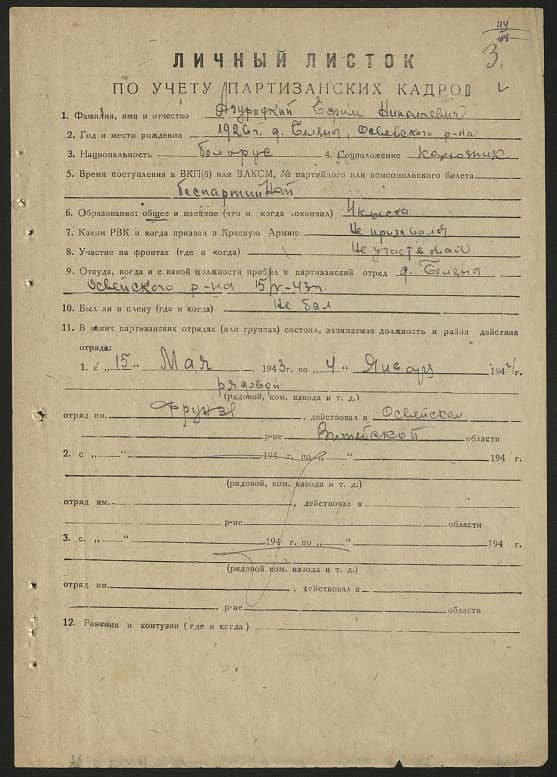 3.
ЛИЧНЫЙ ЛИСТОК
ПО УЧЕТУ ПАРТИЗАНСКИХ КАДРОВ
1. Фамилия, имя и отчество Николаевич
2. Год и место рождения 1926 г. д. Беляны, Освейского р-на
3. Национальность белорус 4. Соцположение колхозник
5. Время поступления в ВКП(б) или ВЛКСМ, № партийного или комсомольского билета
беспартийный
6. Образование: общее и военное (что и когда окончил) 4 класса
7. Каким РВК и когда призван в Красную Армию Не призывался
8. Участие на фронтах (где и когда) Не участвовал
9. Откуда, когда и с какой должности прибыл в партизанский отряд д. Беляны
Освейского р-на 15/V-43г.
10. Был ли в плену (где и когда) Не был
11. В каких партизанских отрядах (или группах) состоял, занимаемая должность и район действия
отряда:
1. с „15“ Мая 1943г. по „4“ Января 1944г.
рядовой
(рядовой, ком. взвода и т. д.)
отряд им. Фрунзе, действовал в Освейском
р-не Витебской области
2. с „ “ 194 г. по „ “ 194 г.
(рядовой, ком. взвода и т. д.)
отряд им. , действовал в
р-не области
3. с „ “ 194 г. по „ “ 194 г.
(рядовой ком. взвода и т. д.)
отряд им. , действовал в
р-не области
12. Ранения и контузии (где и когда)